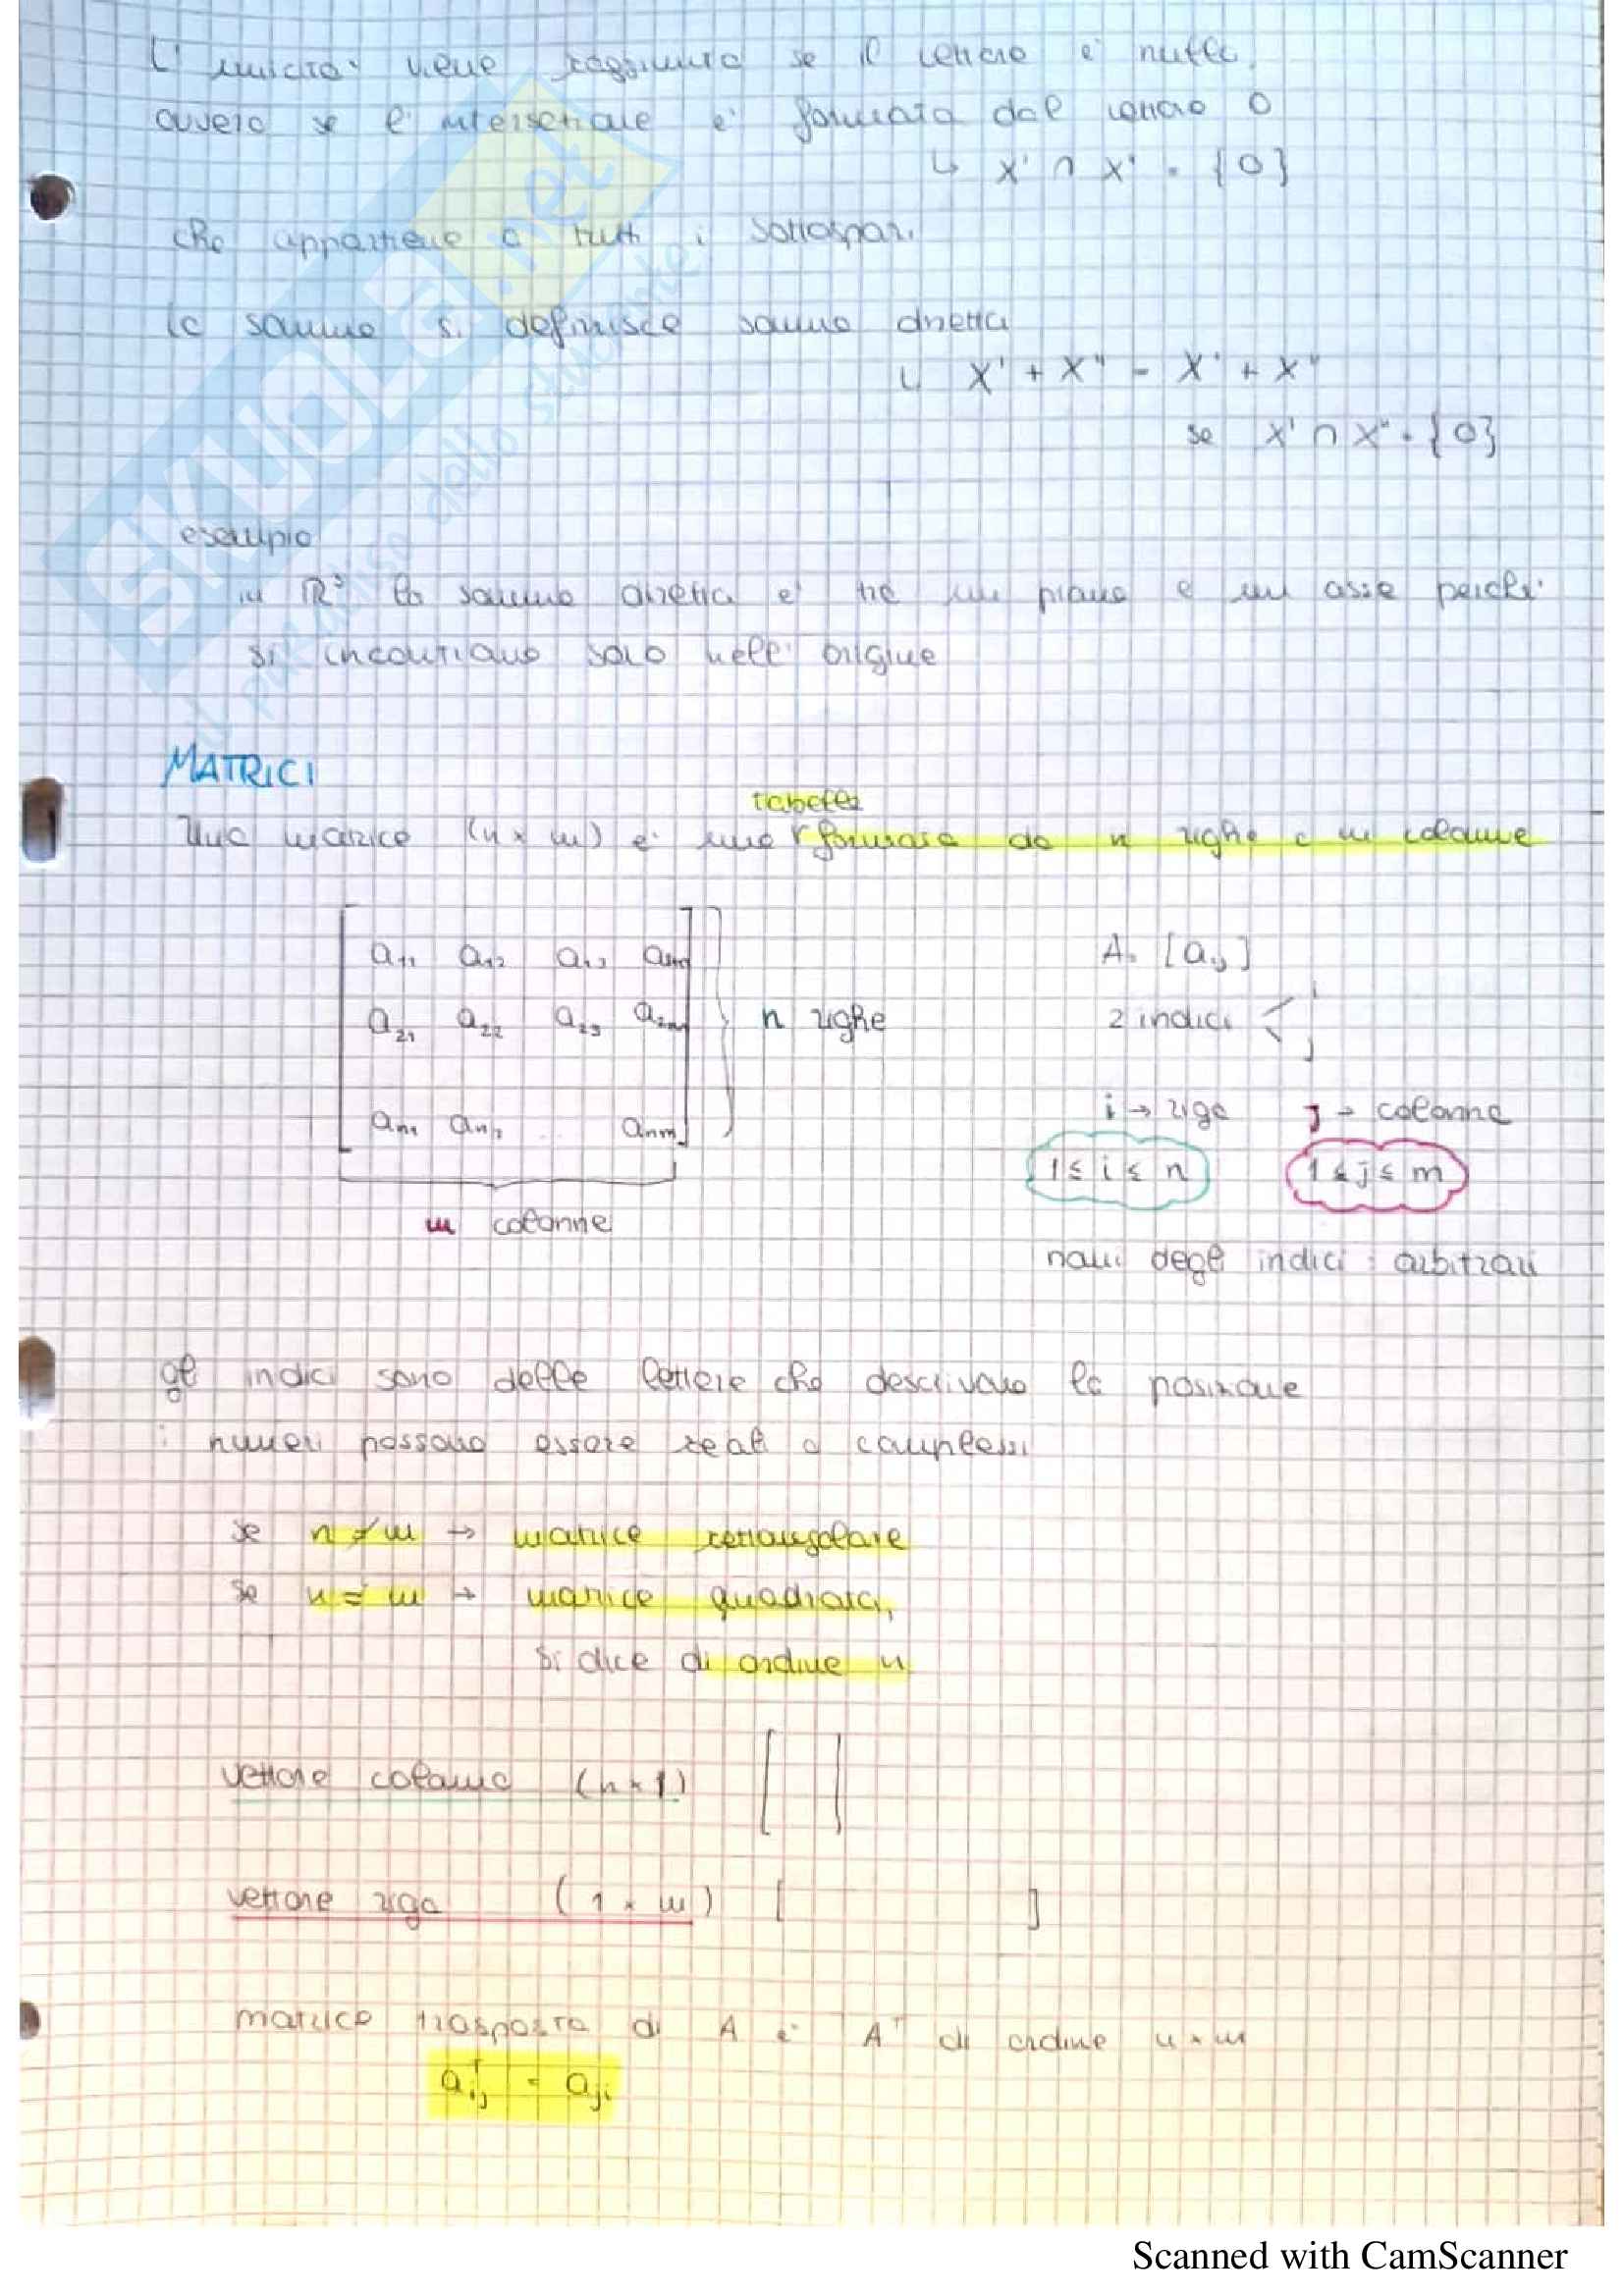 L'unicità viene raggiunta se il vettore è nullo,
ovvero se l'intersezione è formata dal vettore 0
↳ X' ∩ X' = {0}
che appartiene a tutti i sottospazi
la somma si definisce somma diretta
↳ X' + X" = X' + X"
se X' ∩ X" = {0}
esempio
in R³ la somma diretta è tra un piano e un asse perché
si incontrano solo nell'origine
MATRICI
tabella
Una matrice (n × m) è una formata da n righe e m colonne
a₁₁ a₁₂ a₁₃ a₁ₘ
A = [aᵢⱼ]
a₂₁ a₂₂ a₂₃ a₂ₘ
n righe
2 indici < i
j
aₙ₁ aₙ₂ .. aₙₘ
i → riga j → colonna
1 ≤ i ≤ n 1 ≤ j ≤ m
m colonne
nomi degli indici : arbitrari
gli indici sono delle lettere che descrivono la posizione
i numeri possono essere reali o complessi
se n ≠ m → matrice rettangolare
se n = m → matrice quadrata,
si dice di ordine n
vettore colonna (n × 1) [ ]
vettore riga (1 × m) [ ]
matrice trasposta di A è Aᵀ di ordine n × m
aᵀᵢⱼ = aⱼᵢ
SKUOLA.net
il paradiso dello studente
Scanned with CamScanner